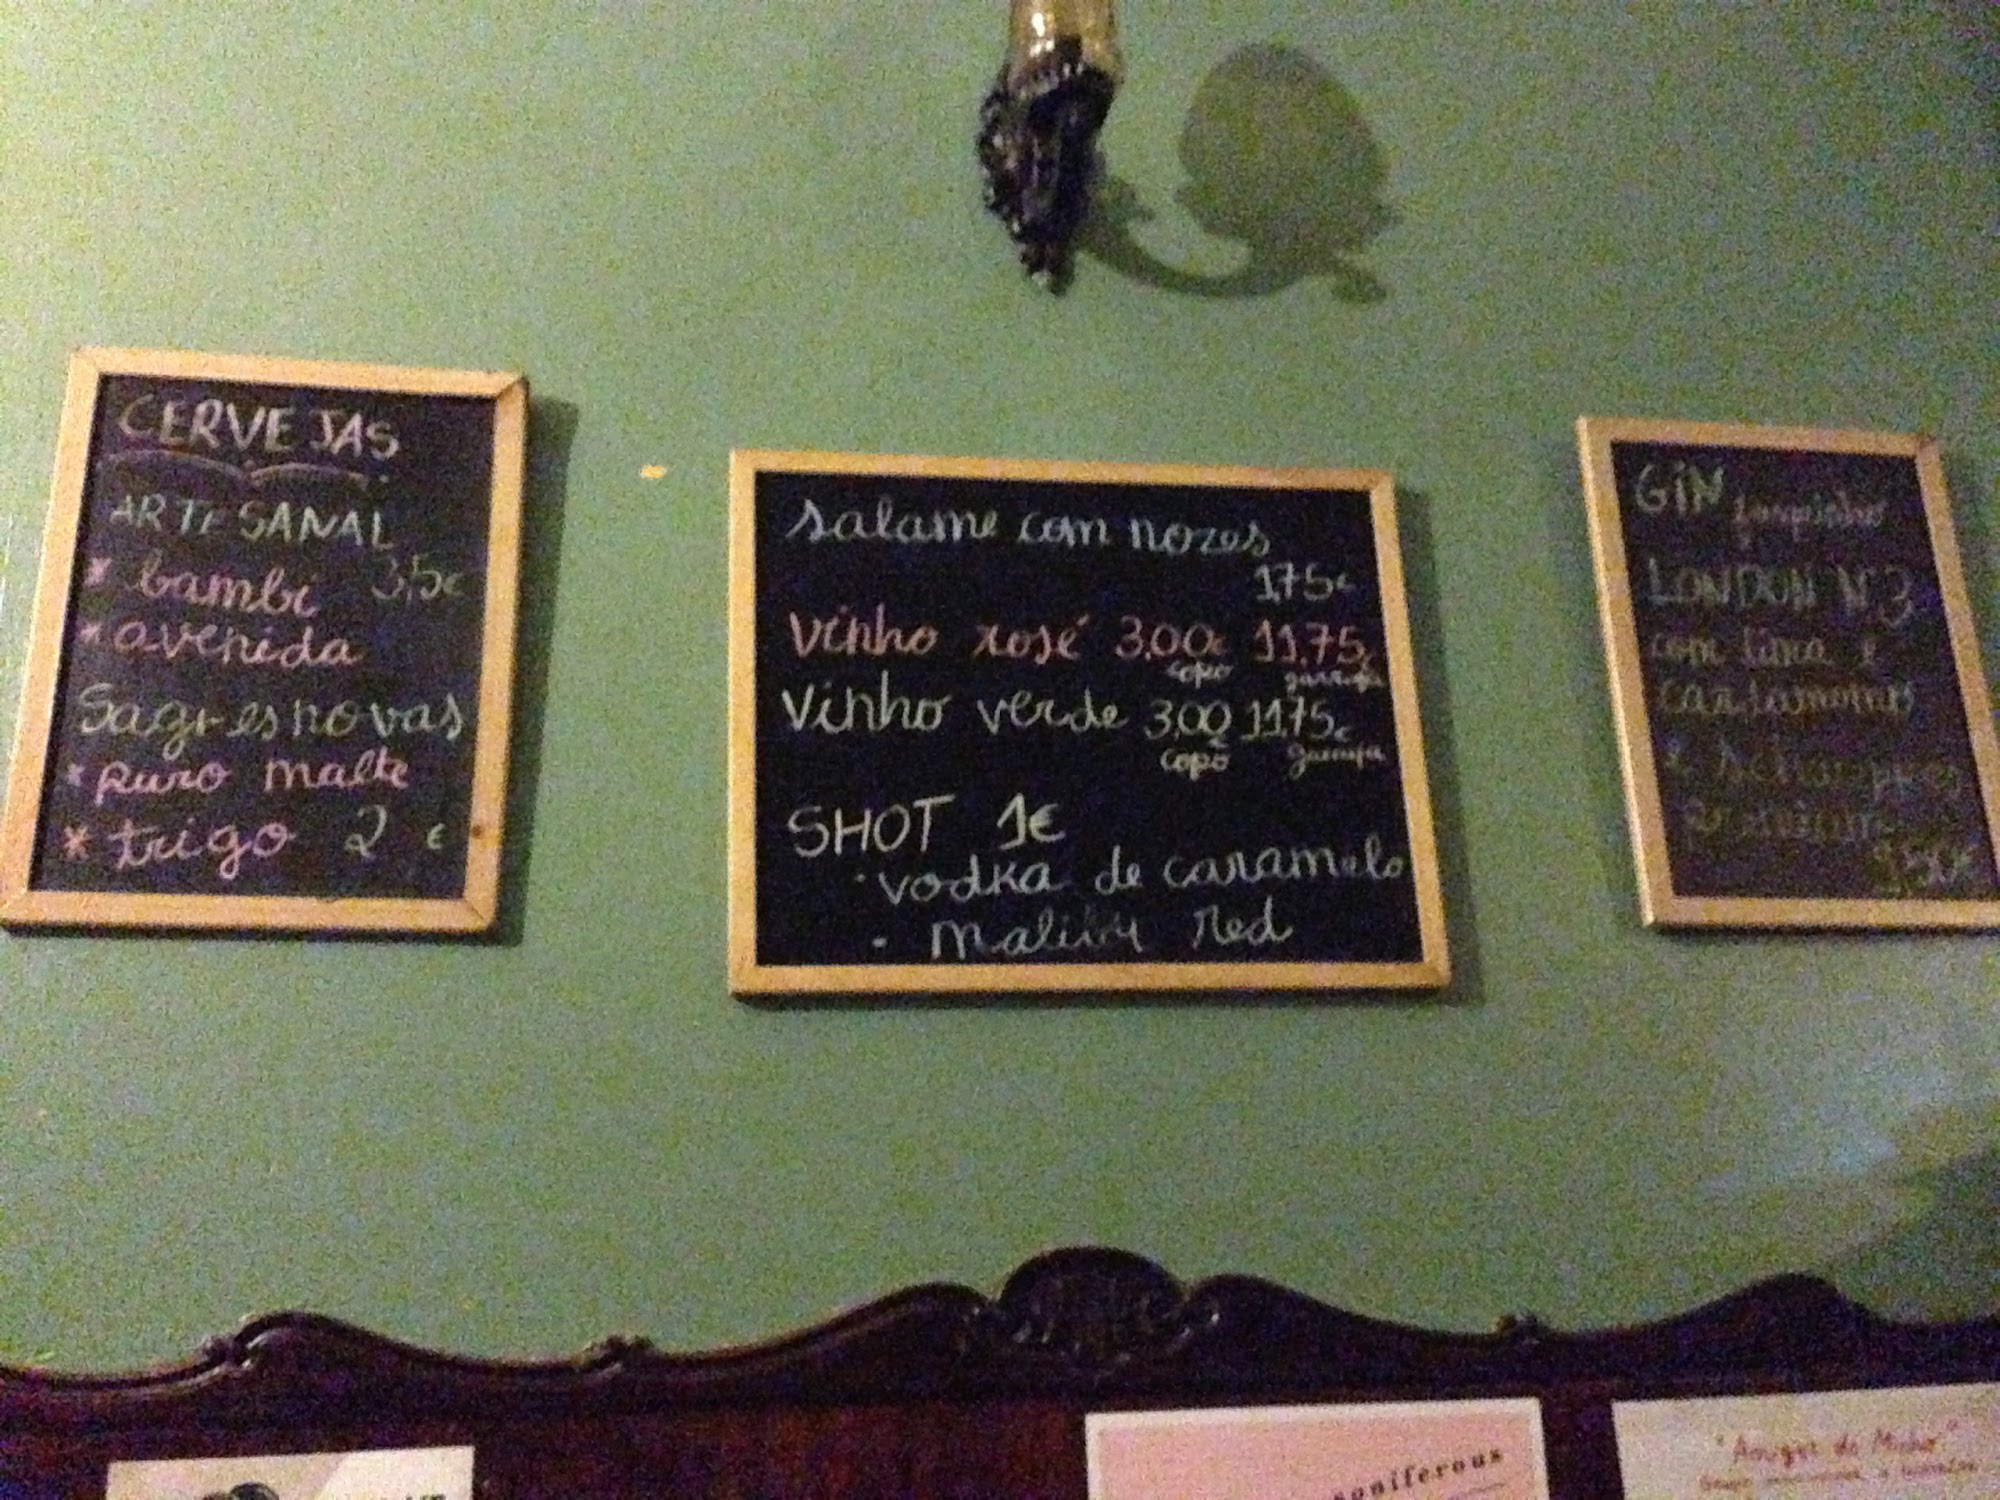 CERVEJAS
ARTESANAL
* bambi 3,5€
* avenida
Sagres novas
* puro malte
* trigo 2 €
Salame com nozes
1,75€
Vinho rosé 3,00€ 11,75€
copo garrafa
Vinho verde 3,00€ 11,75€
copo garrafa
SHOT 1€
· vodka de caramelo
· Malibu Red
GIN fresquinho
LONDON Nº3
com lima e
cardamomo
e Schweppes
soniferous
"Amigos do Minho"